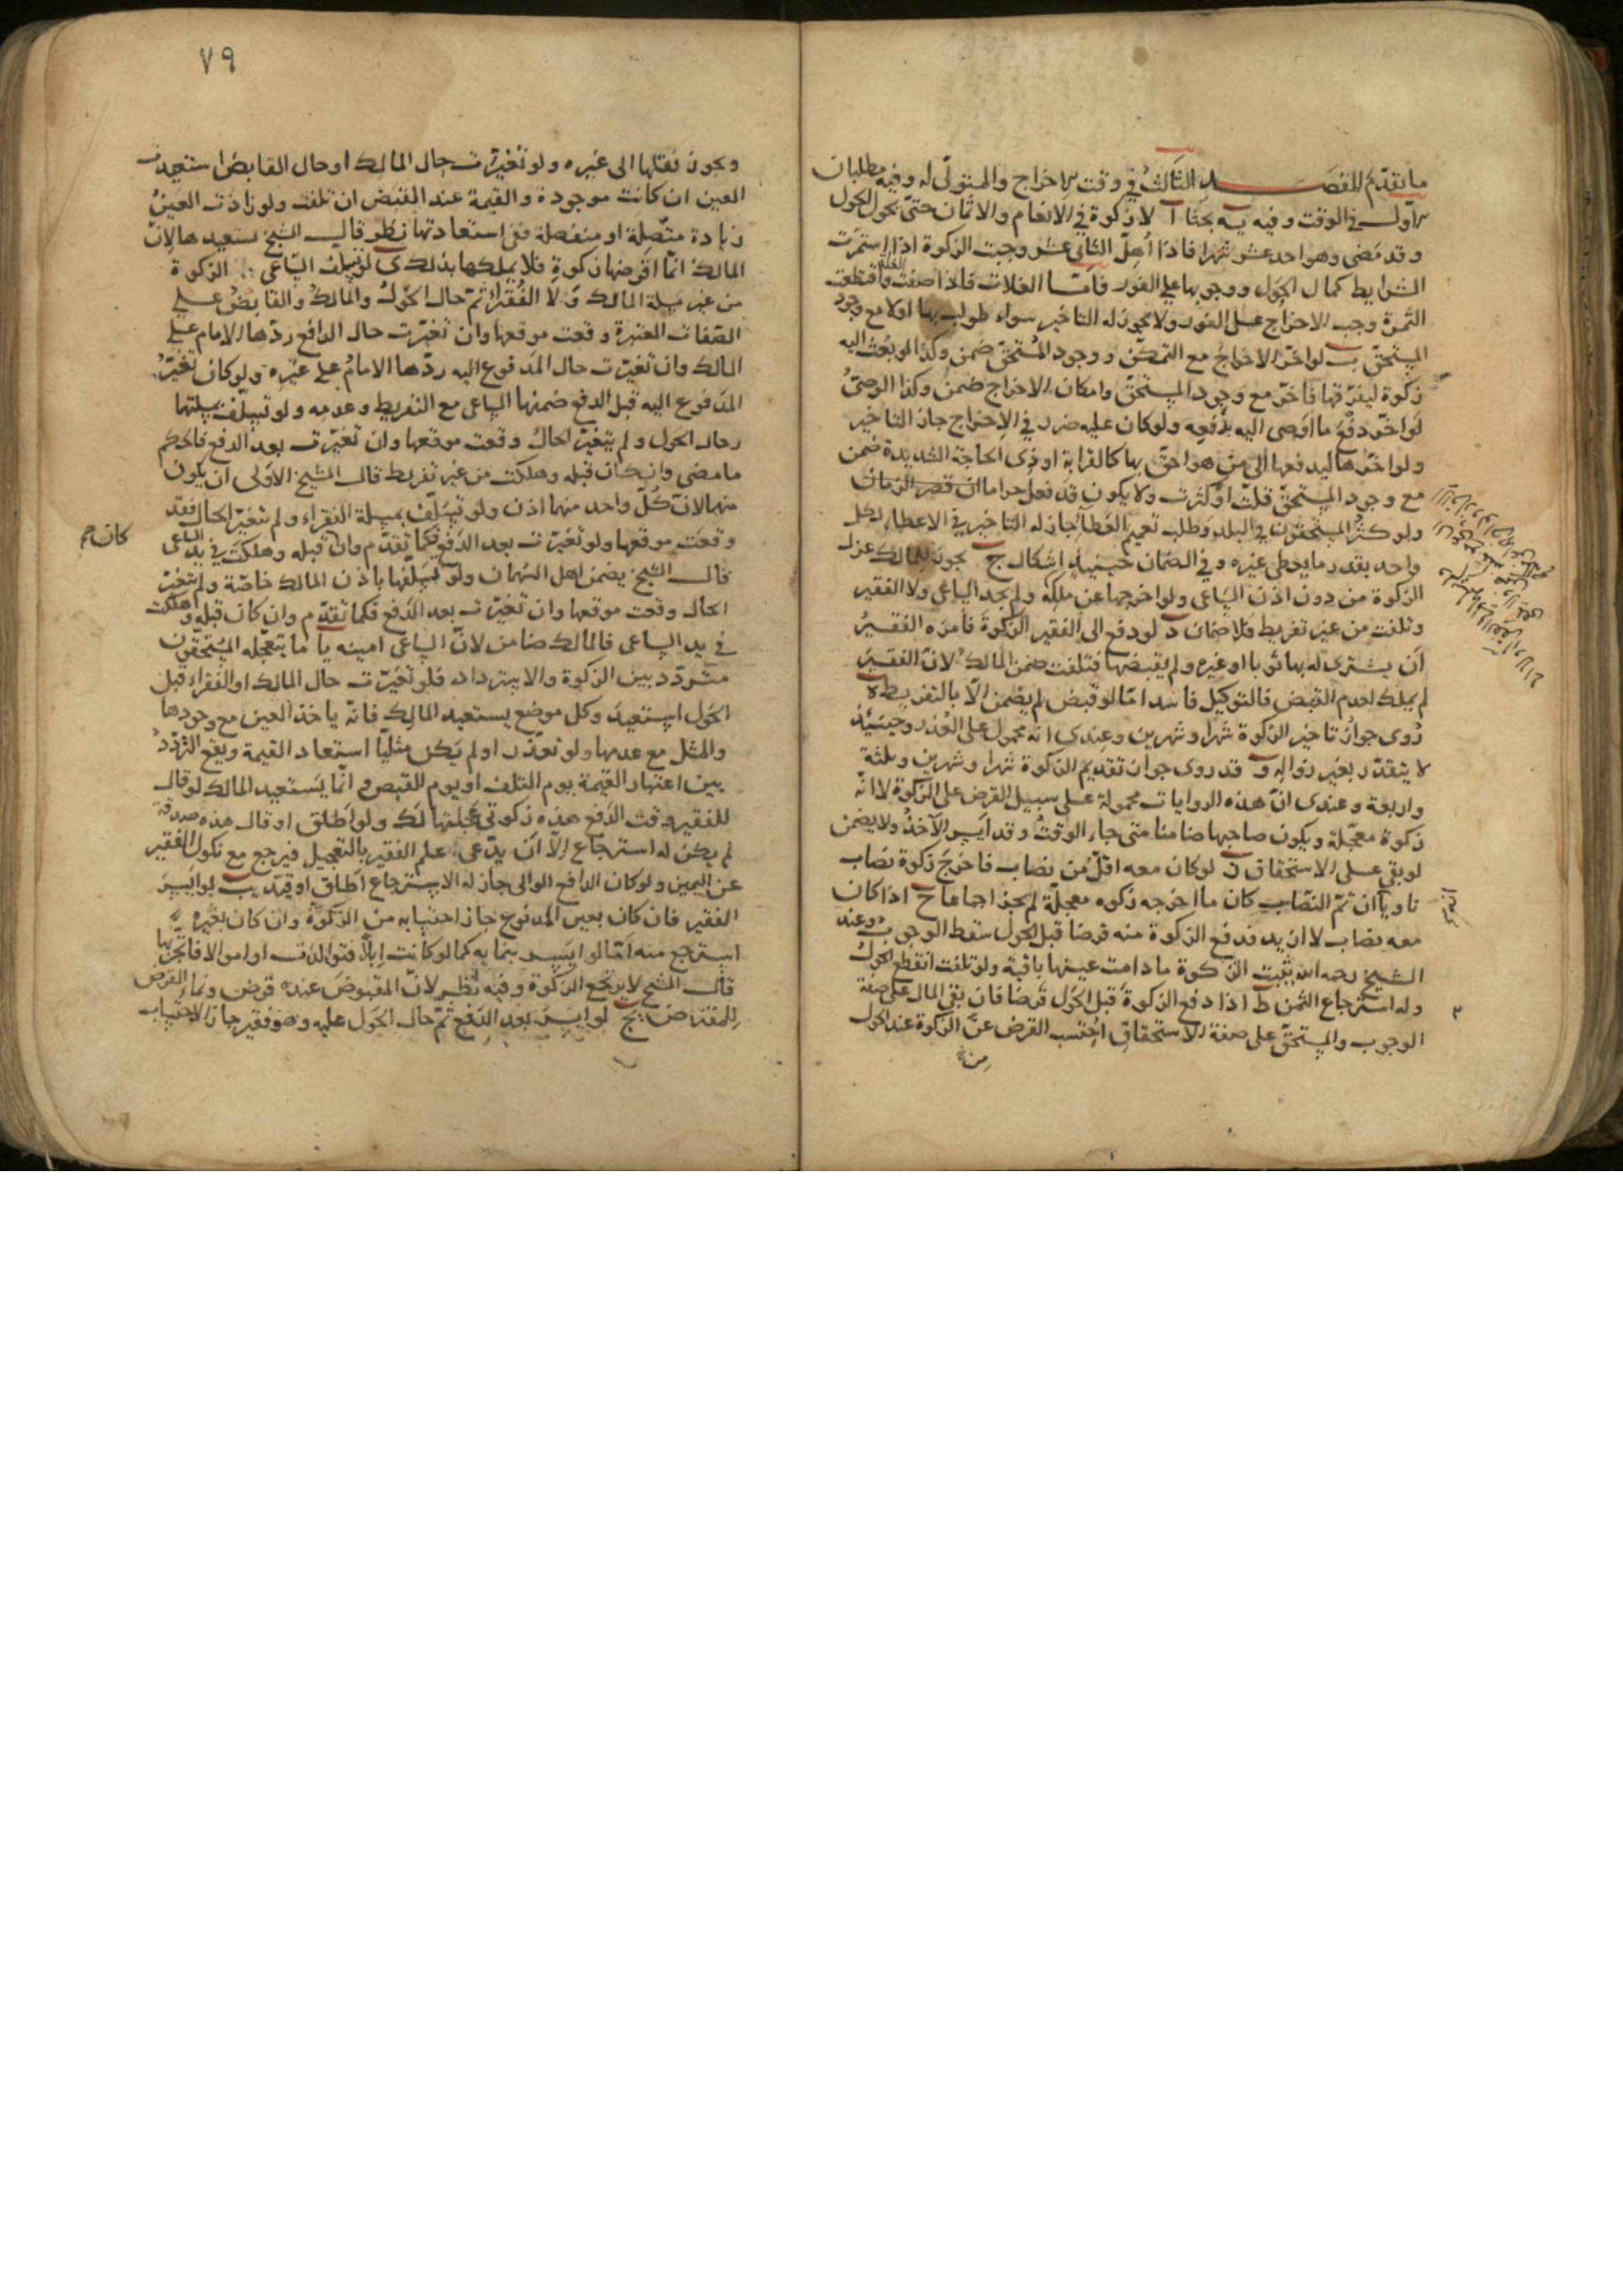 ما تقدم المقصد الثالث في وقت الاخراج والمتولى له وفيه مطلبان
الاول في الوقت وفيه يه بحثا ا لا زكوة في الانعام والاثمان حتى يحول الحول
وقد مضى وهو احد عشر شهرا فاذا اهل الثاني عشر وجبت الزكوة اذا استمرت
الشرايط كمال الحول ووجوبها على الفور فاما الغلات فاذا صفت الغلة واقتطعت
الثمرة وجب الاخراج على الفور ولا يجوز له التاخير سواء طولب بها اولا مع وجود
المستحق ب لو اخر الاخراج مع التمكن ووجود المستحق ضمن وكذا لو بعث اليه
زكوة ليفرقها فاخر مع وجود المستحق وامكان الاخراج ضمن وكذا الوصي
لو اخر دفع ما اوصى اليه بدفعه ولو كان عليه ضرر في الاخراج جاز التاخير
ولو اخرها ليدفعها الى من هو احق بها كالقرابة او ذوى الحاجة الشديدة ضمن
مع وجود المستحق قلت او كثرت ولا يكون قد فعل حراما ان قصر الزمان
ولو كثر المستحقون في البلد وطلب تعميم العطاء جاز له التاخير في الاعطاء لكل
واحد بقدر ما يعطى غيره وفي الضمان حينئذ اشكال ج يجوز للمالك عزل
الزكوة من دون اذن الساعى ولو اخرجها عن ملكه ولم يجد الساعى ولا الفقير
وتلفت من غير تفريط فلا ضمان د لو دفع الى الفقير الزكوة فامره الفقير
ان يشترى له بها ثوبا او غيره ولم يقبضها فتلفت ضمن المالك لان الفقير
لم يملك لعدم القبض فالتوكيل فاسد اما لو قبض لم يضمن الا بالتفريط ه
روى جواز تاخير الزكوة شهرا وشهرين وعندى انه محمول على العذر وحينئذ
لا يتقدر بغير زواله و قد روى جواز تقديم الزكوة شهرا وشهرين وثلثة
واربعة وعندى ان هذه الروايات محمولة على سبيل القرض على الزكوة لا انه
زكوة معجلة ويكون صاحبها ضامنا متى جاء الوقت وقد ايسر الآخذ ولا يضمن
لو بقى على الاستحقاق ز لو كان معه اقل من نصاب فاخرج زكوة نصاب
ناويا ان تم النصاب كان ما اخرجه زكوه معجلة لم يجز اجماعا ح اذا كان
معه نصاب لا ازيد فدفع الزكوة منه قرضا قبل الحول سقط الوجوب وعند
الشيخ رحمه الله يثبت الزكوة ما دامت عينها باقية ولو تلفت انقطع الحول
وله استرجاع الثمن ط اذا دفع الزكوة قبل الحول قرضا فان بقى المال على صفة
الوجوب والمستحق على صفة الاستحقاق احتسب القرض عن الزكوة عند الحول
٧٩
ويجوز نقلها الى غيره ولو تغيرت حال المالك او حال القابض استعيدت
العين ان كانت موجودة والقيمة عند القبض ان تلفت ولو زادت العين
زيادة متصلة او منفصلة ففى استعادتها نظر قال الشيخ يستعيدها لان
المالك انما اقرضها زكوة فلا يملكها بذلك ى لو تسلف الساعى الزكوة
من غير مسلة المالك ولا الفقراء ثم حال الحول والمالك والقابض على
الصفات المعتبرة وقعت موقعها وان تغيرت حال الدافع ردها الامام على
المالك وان تغيرت حال المدفوع اليه ردها الامام على غيره ولو كان تغير
المدفوع اليه قبل الدفع ضمنها الساعى مع التفريط وعدمه ولو تسلف بمسلتهما
وحال الحول ولم يتغير الحال وقعت موقعها وان تغيرت بعد الدفع فالحكم
ما مضى وان كان قبله وهلكت من غير تفريط قال الشيخ الاولى ان يكون
منهما لان كل واحد منهما اذن ولو تسلف بمسلة الفقراء ولم تتغير الحال فقد
وقعت موقعها ولو تغيرت بعد الدفع فكما تقدم وان قبله وهلكت في يد الساعى
كان صح
قال الشيخ يضمن اهل السهمان ولو تسلفها باذن المالك خاصة ولم يتغير
الحال وقعت موقعها وان تغيرت بعد الدفع فكما تقدم وان كان قبله وهلكت
في يد الساعى فالمالك ضامن لان الساعى امينه يا ما يتعجله المستحقون
متردد بين الزكوة والاسترداد فلو تغيرت حال المالك او الفقراء قبل
الحول استعيد وكل موضع يستعيد المالك فانه ياخذ العين مع وجودها
والمثل مع عدمها ولو تعذر او لم يكن مثليا استعاد القيمة ويقع التردد
بين اعتبار القيمة يوم التلف او يوم القبض وانما يستعيد المالك لو قال
للفقير وقت الدفع هذه زكوتى عجلتها لك ولو اطلق او قال هذه صدقة
لم يكن له استرجاع الا ان يدعى علم الفقير بالتعجيل فيرجع مع نكول الفقير
عن اليمين ولو كان الدافع الوالى جاز له الاسترجاع اطلق او قيد يب لو ايسر
الفقير فان كان بعين المدفوع جاز احتسابه من الزكوة وان كان بغيره
استرجع منه اما لو ايسر بنمايه كما لو كانت ابلا فتوالدت او اموالا فاتجر بها
قال الشيخ لا يرتجع الزكوة وفيه نظر لان المقبوض عنده قرض ونماء القرض
للمقترض يج لو ايسر بعد الدفع ثم حال الحول عليه وهو فقير جاز الاحتساب